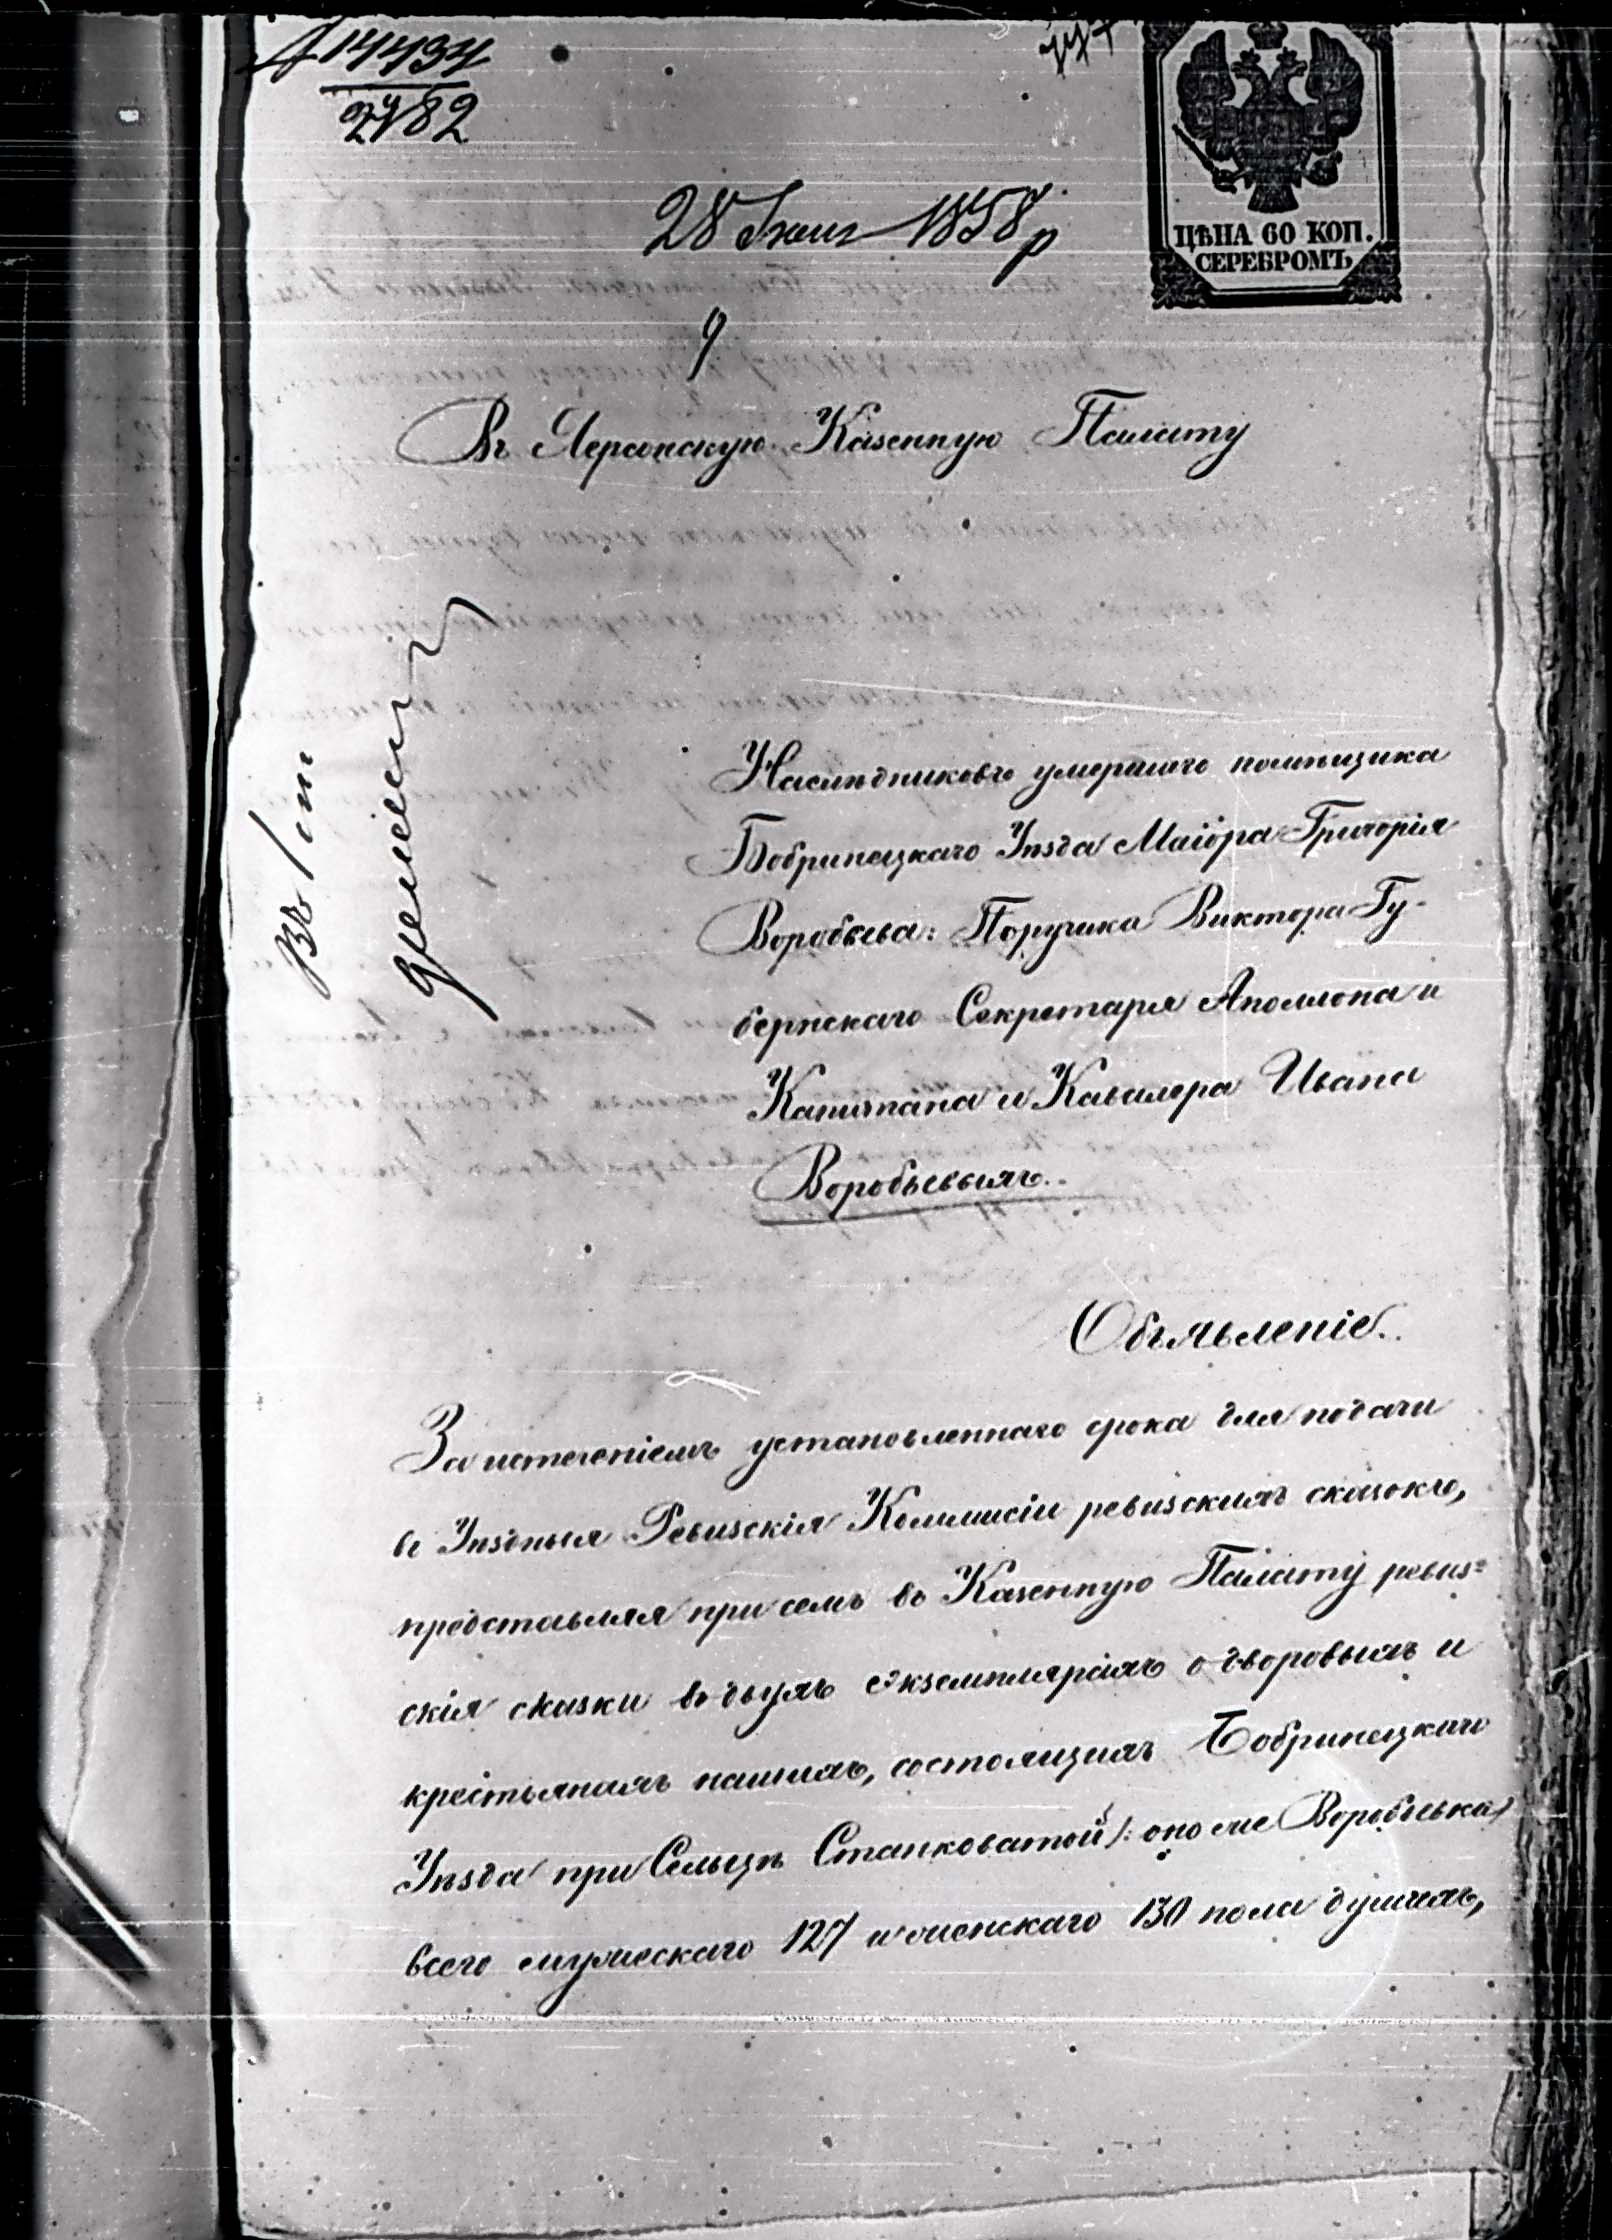 14434
2482
28 Іюня 1858 р
ЦѢНА 60 КОП.
СЕРЕБРОМЪ
Въ Херсонскую Казенную Палату
Въ 1 от
Наслѣдниковъ умершаго помѣщика
Бобринецкаго Уѣзда Маіора Григорія
Воробьева: Поручика Виктора Гу-
бернскаго Секретаря Аполлона и
Капитана и Кавалера Ивана
Воробьевыхъ.
Объявленіе.
За истеченіемъ установленнаго срока для подачи
въ Уѣздныя Ревизскія Коммисіи ревизскихъ сказокъ,
представляя при семъ въ Казенную Палату ревиз=
скія сказки въ двухъ екземплярахъ о дворовыхъ и
крестьянахъ нашихъ, состоящихъ Бобринецкаго
Уѣзда при Сельцѣ Станковатой /: оно же Воробьевка)
всего мужескаго 127 и женскаго 130 пола душахъ,